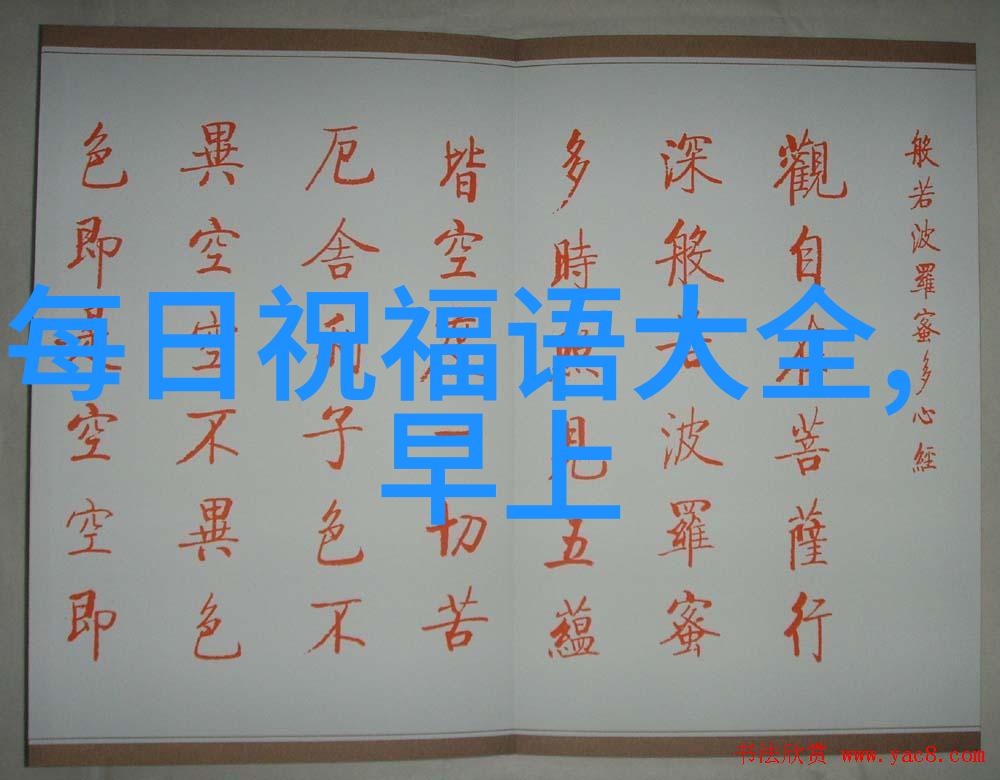 般若波羅蜜多心經
觀自在菩薩行
深般若波羅蜜
多時照見五蘊
皆空度一切苦
厄舍利子色不
異空空不異色
色即是空空即
每日祝福语大全,
早上
书法欣赏 www.yac8.com